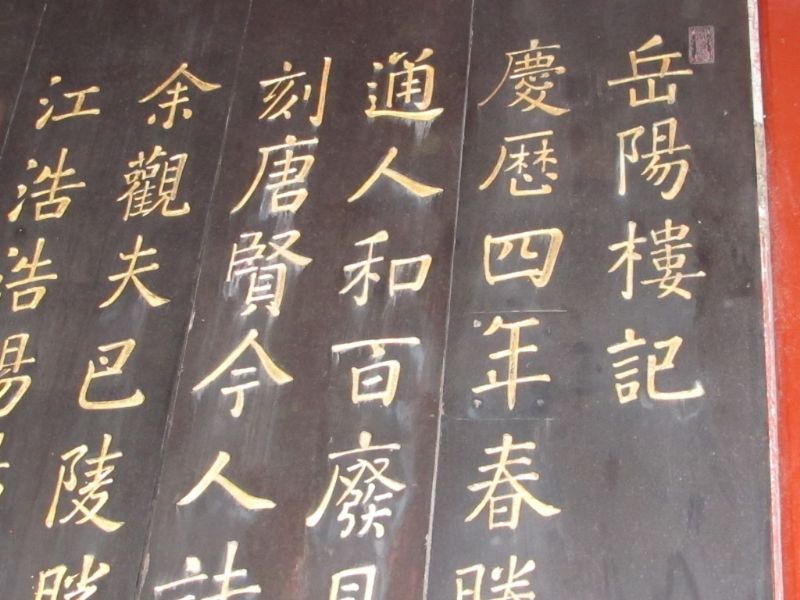 岳陽樓記
慶歷四年春滕
通人和百廢具
刻唐賢今人詩
余觀夫巴陵勝
江浩浩湯